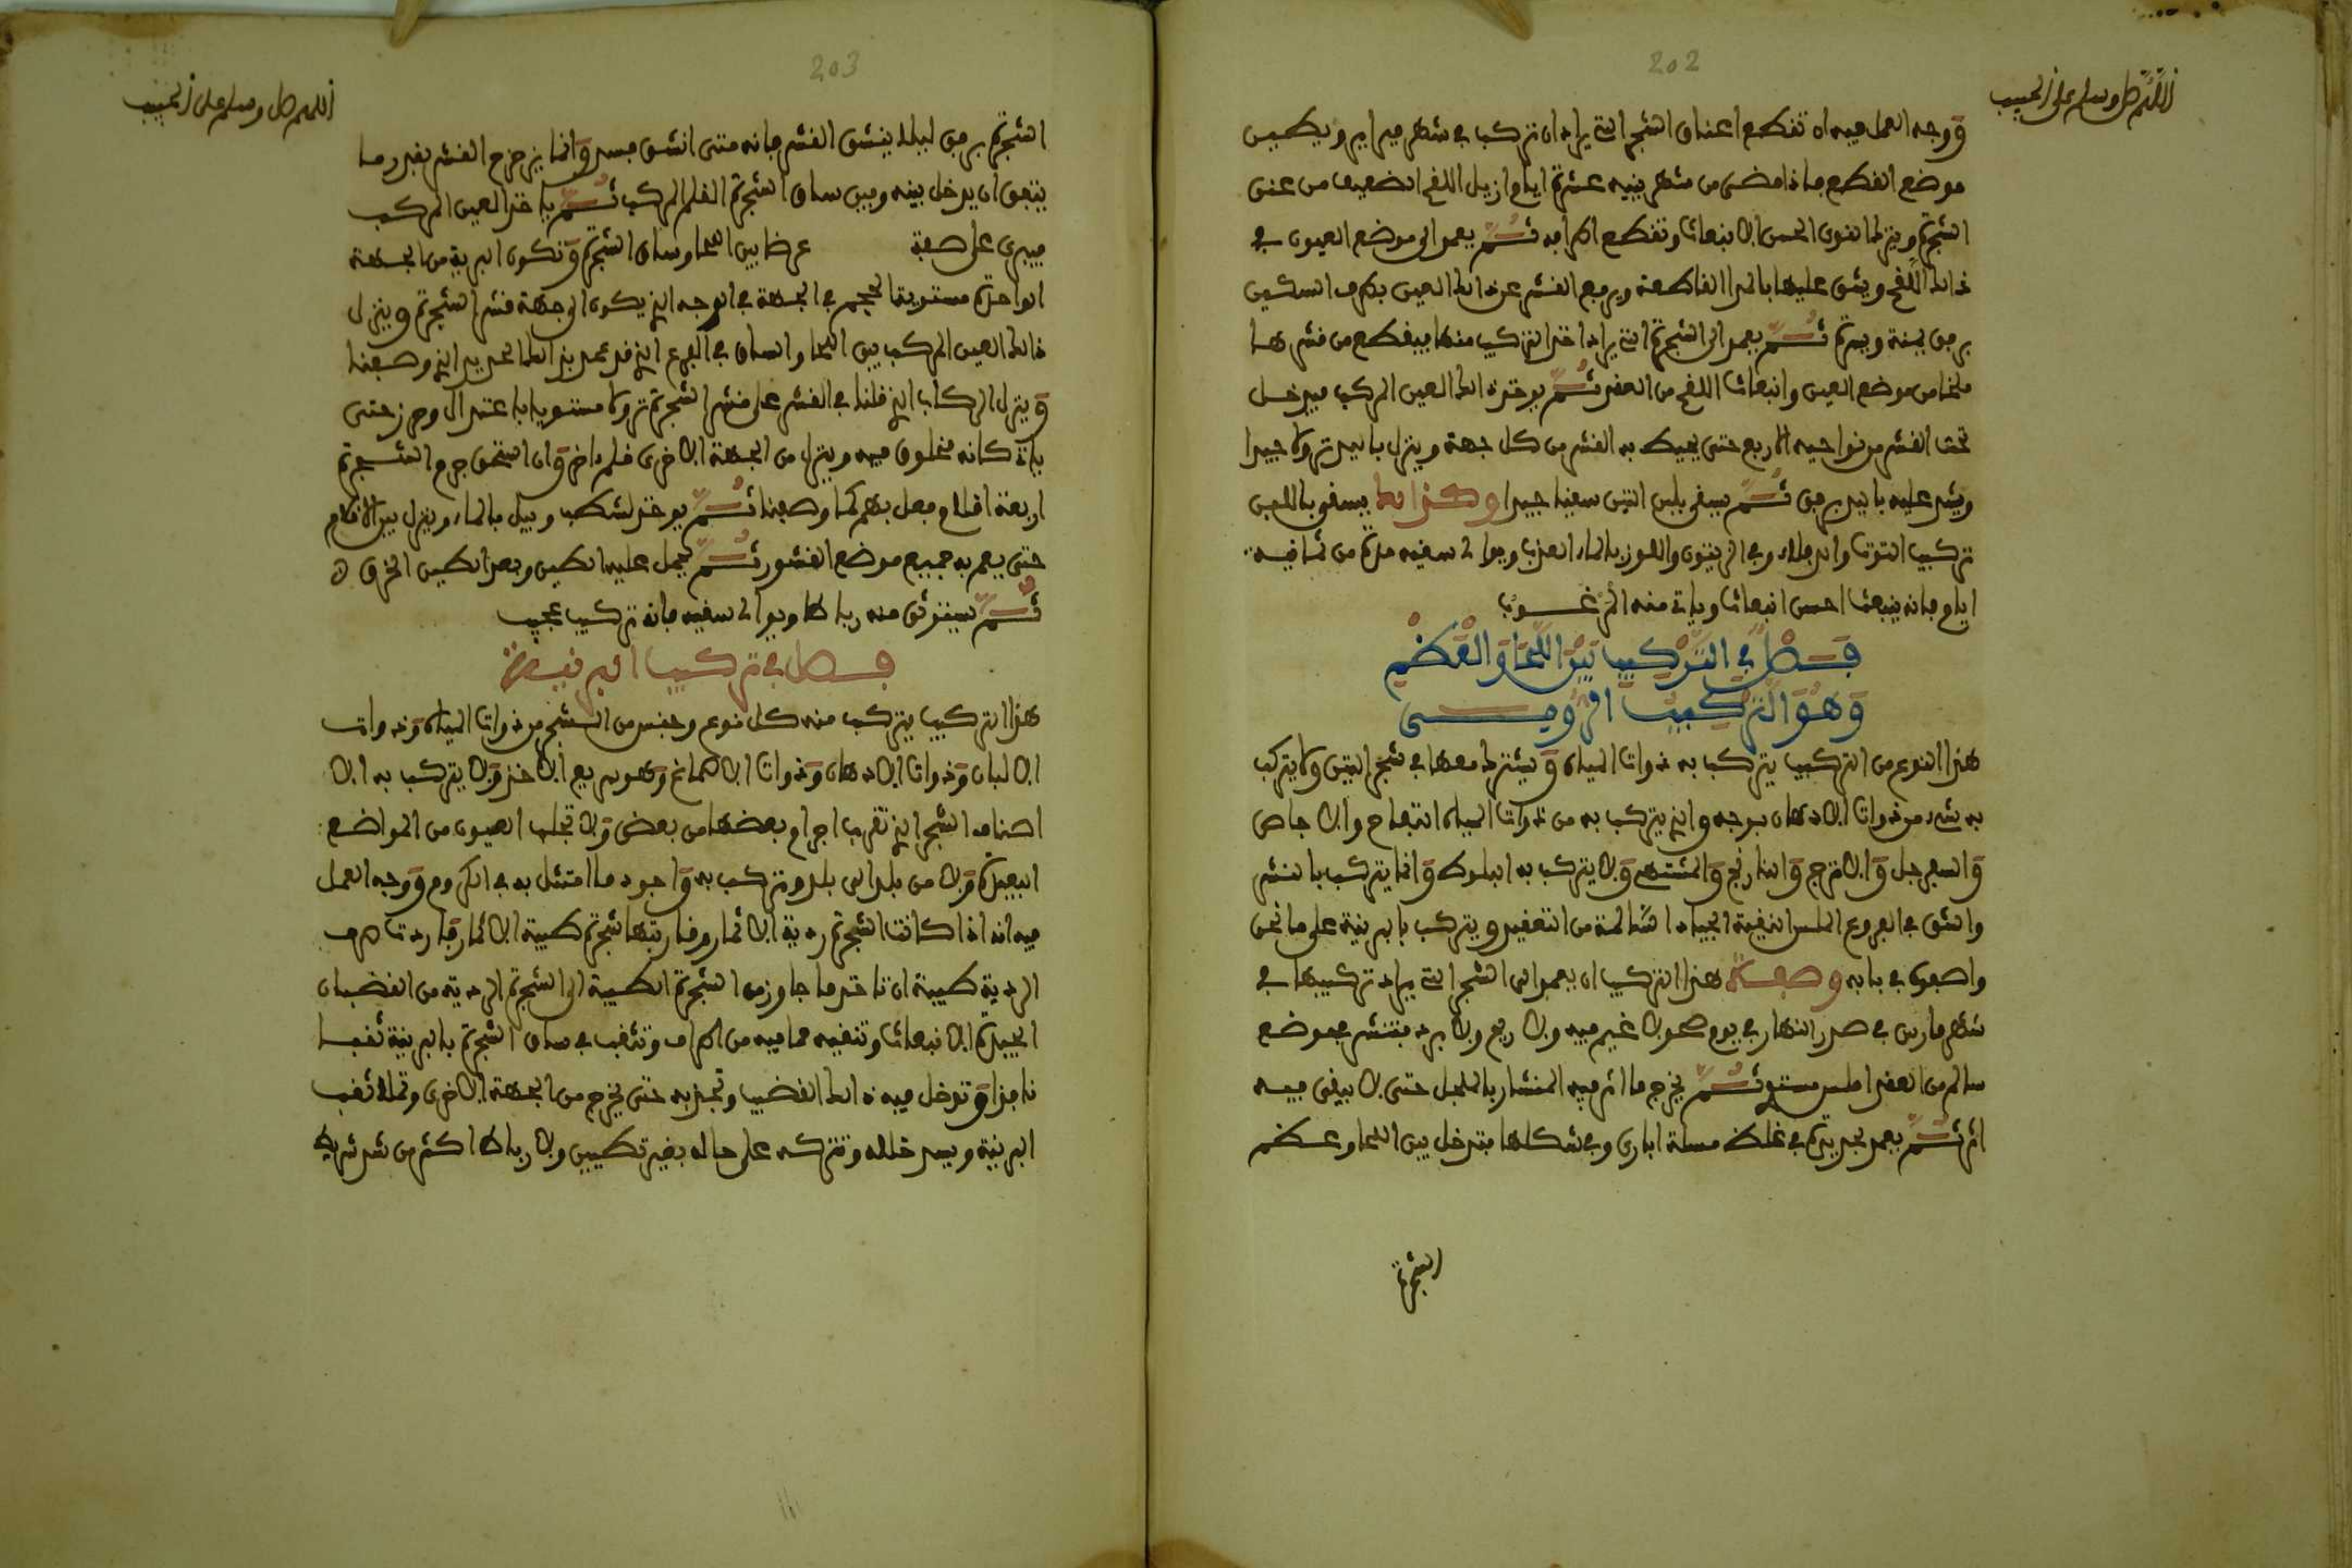 202
اللهم صل وسلم على الحبيب
ووجه العمل فيه ان تقطع اعناق الشجر التي يراد ان تركب في شهر فبراير ويطين
موضع القطع فاذا مضى من شهر ينيه عشرة ايام ازيل اللقح الضعيف من عنق
الشجرة ويترك القوي الحسن الانبعاث وتقطع اطرافه ثم يعمد الى موضع العيون في
ذلك اللقح ويشق عليها بالمرا القاطعة ويرفع القشر عن ذلك العين بطرف السكين
برفق يمنة ويسرة ثم يعمد الى الشجرة التي يراد اخذ التركيب منها فيقطع من قشرها
ملخا من موضع العين وانبعاث اللقح من العقد ثم يوخذ ذلك العين المركب فيدخل
تحت القشر من نواحيه الاربع حتى يحيط به القشر من كل جهة وينزل باليد نزولا جيدا
ويشد عليه باليد برفق ثم يسقى بلبن التين سقيا جيدا وكذلك يسقى باللبن
تركيب التوت والدفلاء وفي الزيتون واللوز بالماء العذب ويوالى سقيه مدة من ثمانية
ايام فانه ينبعث احسن انبعاث وياتي منه المرغوب
فصل في التركيب بين اللحا والعظم
وهو التركيب الرومي
هذا النوع من التركيب يتركب به ذوات المياه ويشترك معها في شجر التين ولا يتركب
به شيء من ذوات الادهان بوجه والذي يتركب به من ذوات المياه التفاح والاجاص
والسفرجل والاترج والنارنج والمشتهى ولا يتركب به البلوط وانما يتركب بالنشر
والشق في الفروع الملس النقية الجياد السالمة من التعقيد ويتركب بالبرنية على ما نحن
واصفون في بابه وصفة هذا التركيب ان يعمد الى الشجر التي يراد تركيبها في
شهر مارس في صدر النهار في يوم صحو لا غيم فيه ولا ريح ولا برد فتنشر بموضع
سالم من العقد املس مستو ثم يخرج ما اثر فيه المنشار بالمنجل حتى لا يبقى فيه
اثر ثم يعمد بحديدة في غلظ مسلة اباري وفي شكلها فتدخل بين اللحا وعظم
الشجرة
203
اللهم صل وسلم على الحبيب
الشجرة برفق ليلا ينشق القشر فانه متى انشق فسد وانما يزحزح القشر بقدر ما
يتفق ان يدخل بينه وبين ساق الشجرة القلم المركب ثم ياخذ العين المركب
فيبرى على صفة عرضا بين اللحا وساق الشجرة وتكون البرية من الجهة
الواحدة مستوية الحجم في الجهة في الوجه الذي يكون الى جهة قشر الشجرة وينزل
ذلك العين المركب بين اللحا والساق في الفرع الذي قد عمد بذلك الحديد الذي وصفنا
وينزل الركاب الذي قلنا في القشر على قشر الشجرة نزولا مستويا باعتدال وحرز حتى
ياتي كانه مخلوق فيه وينزل من الجهة الاخرى قلم اخر وان استحق جرم الشجرة
اربعة اقلام فعل بهم كما وصفنا ثم يوخذ لشطب ويبل بالماء وينزل بين الاقلام
حتى يعم به جميع موضع القشور ثم يحمل عليه الطين وبعد الطين الخرق
ثم يستوثق منه رباطا ويوالى سقيه فانه تركيب عجيب
فصل في تركيب البرنية
هذا التركيب يتركب منه كل نوع وجنس من الشجر من ذوات المياه وذوات
الالبان وذوات الادهان وذوات الاصماغ وهو سريع الاخذ ولا يتركب به الا
اصناف الشجر الذي تقرب اجرام بعضها من بعض ولا تجلب العيون من المواضع
البعيدة ولا من بلد الى بلد وتركب به واجود ما امتثل به في الكروم ووجه العمل
فيه انه اذا كانت الشجرة ردية الاثمار وقاربتها شجرة طيبة الاثمار فاردت صرف
الردية طيبة ان تاخذ ما جاوز من الشجرة الطيبة الى الشجرة الردية من القضبان
الجيدة الانبعاث وتنقيه مما فيه من اطراف وتثقب في ساق الشجرة بالبرنية ثقبا
نافذا وتدخل فيه ذلك القضيب وتجذبه حتى يخرج من الجهة الاخرى وتملا ثقب
البرنية ويسد خلله وتتركه على حاله بغير تطيين ولا رباط اكثر من شد شريط